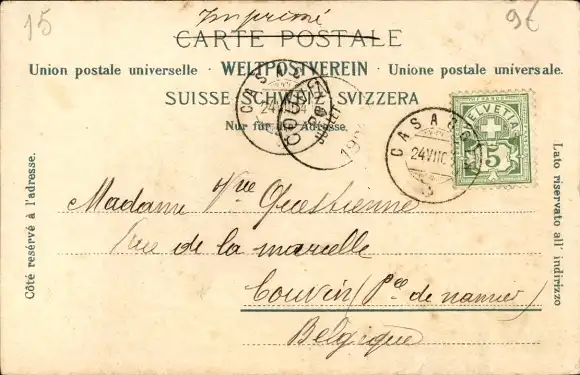 15
9€
Imprimé
CARTE POSTALE
Union postale universelle · WELTPOSTVEREIN · Unione postale universale.
SUISSE SCHWEIZ SVIZZERA
Nur für die Adresse.
COUVIN
JUILLET
CASA
24 VII
HELVETIA
5
Côté reservé à l'adresse.
Lato riservato all' indirizzo
Madame Vve Questienne
Rue de la marcelle
Couvin (Pce de namur)
Belgique